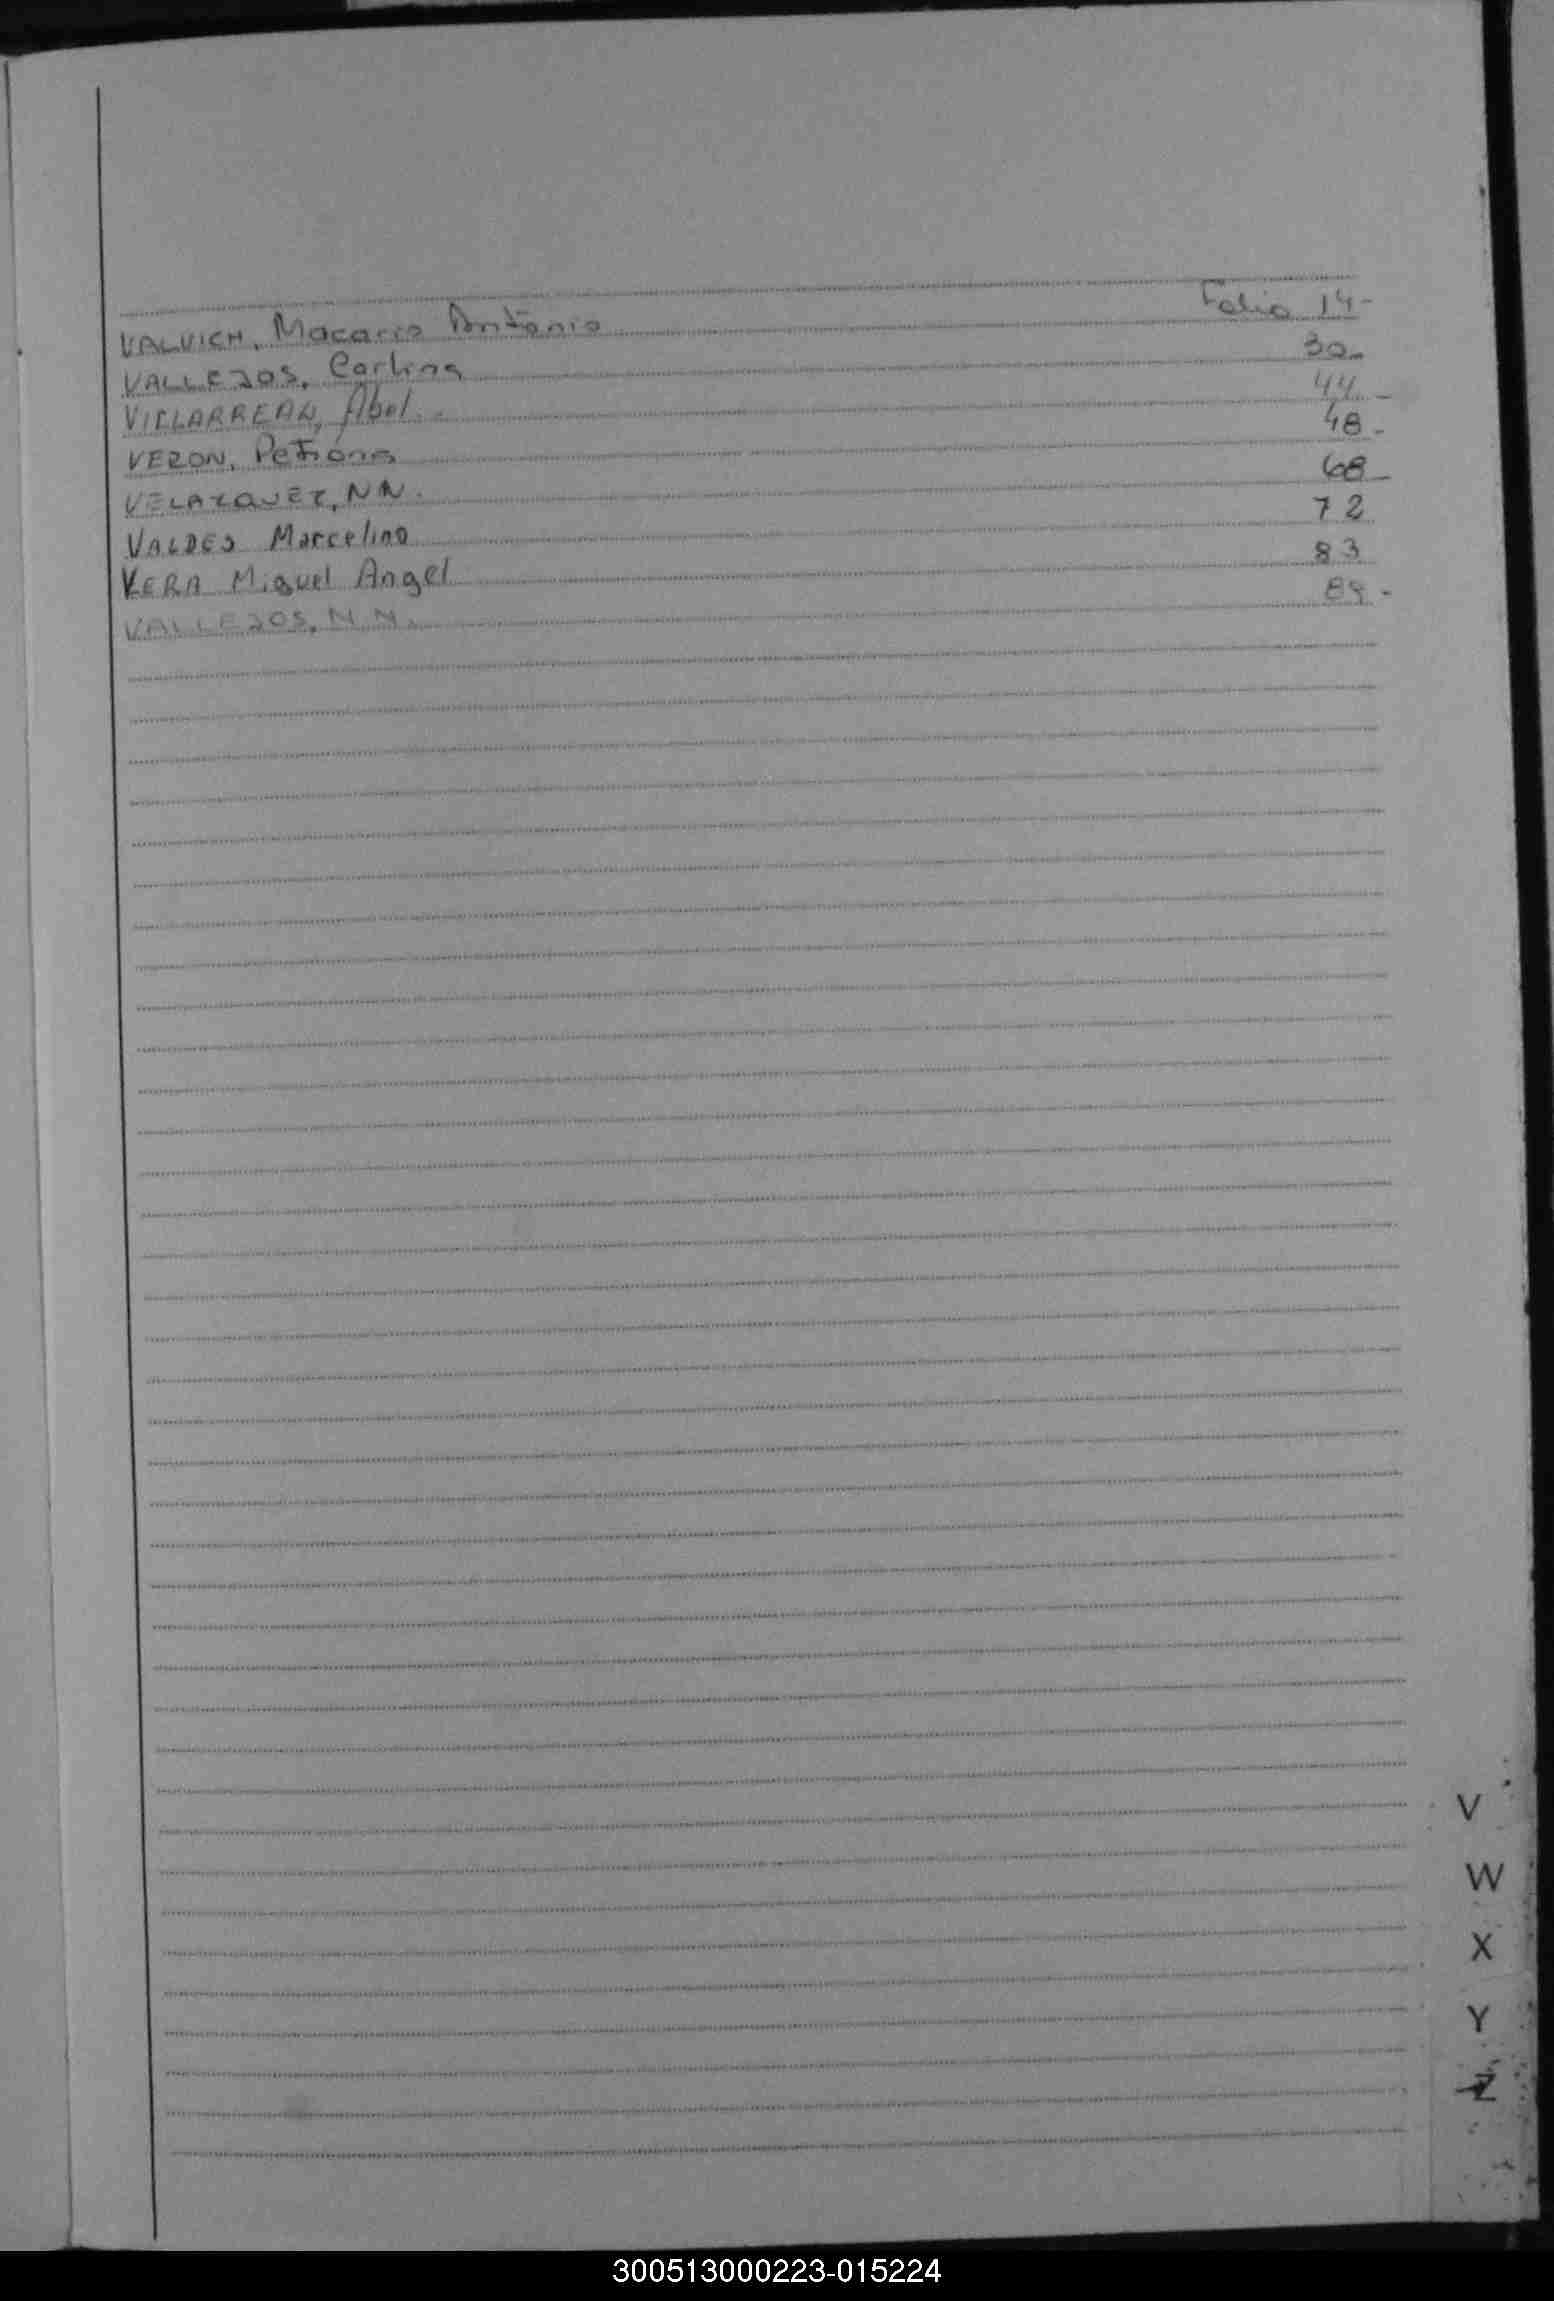 VALVICH, Macario Antonio Folio 14-
VALLEJOS, Carlina 30-
VILLARREAL, Abel. 44-
VERON, Petrona 48-
VELAZQUEZ, NN. 68-
VALDES Marcelino 72
VERA Miguel Angel 83
VALLEJOS, N.N. 89-
V
W
X
Y
Z
300513000223-015224